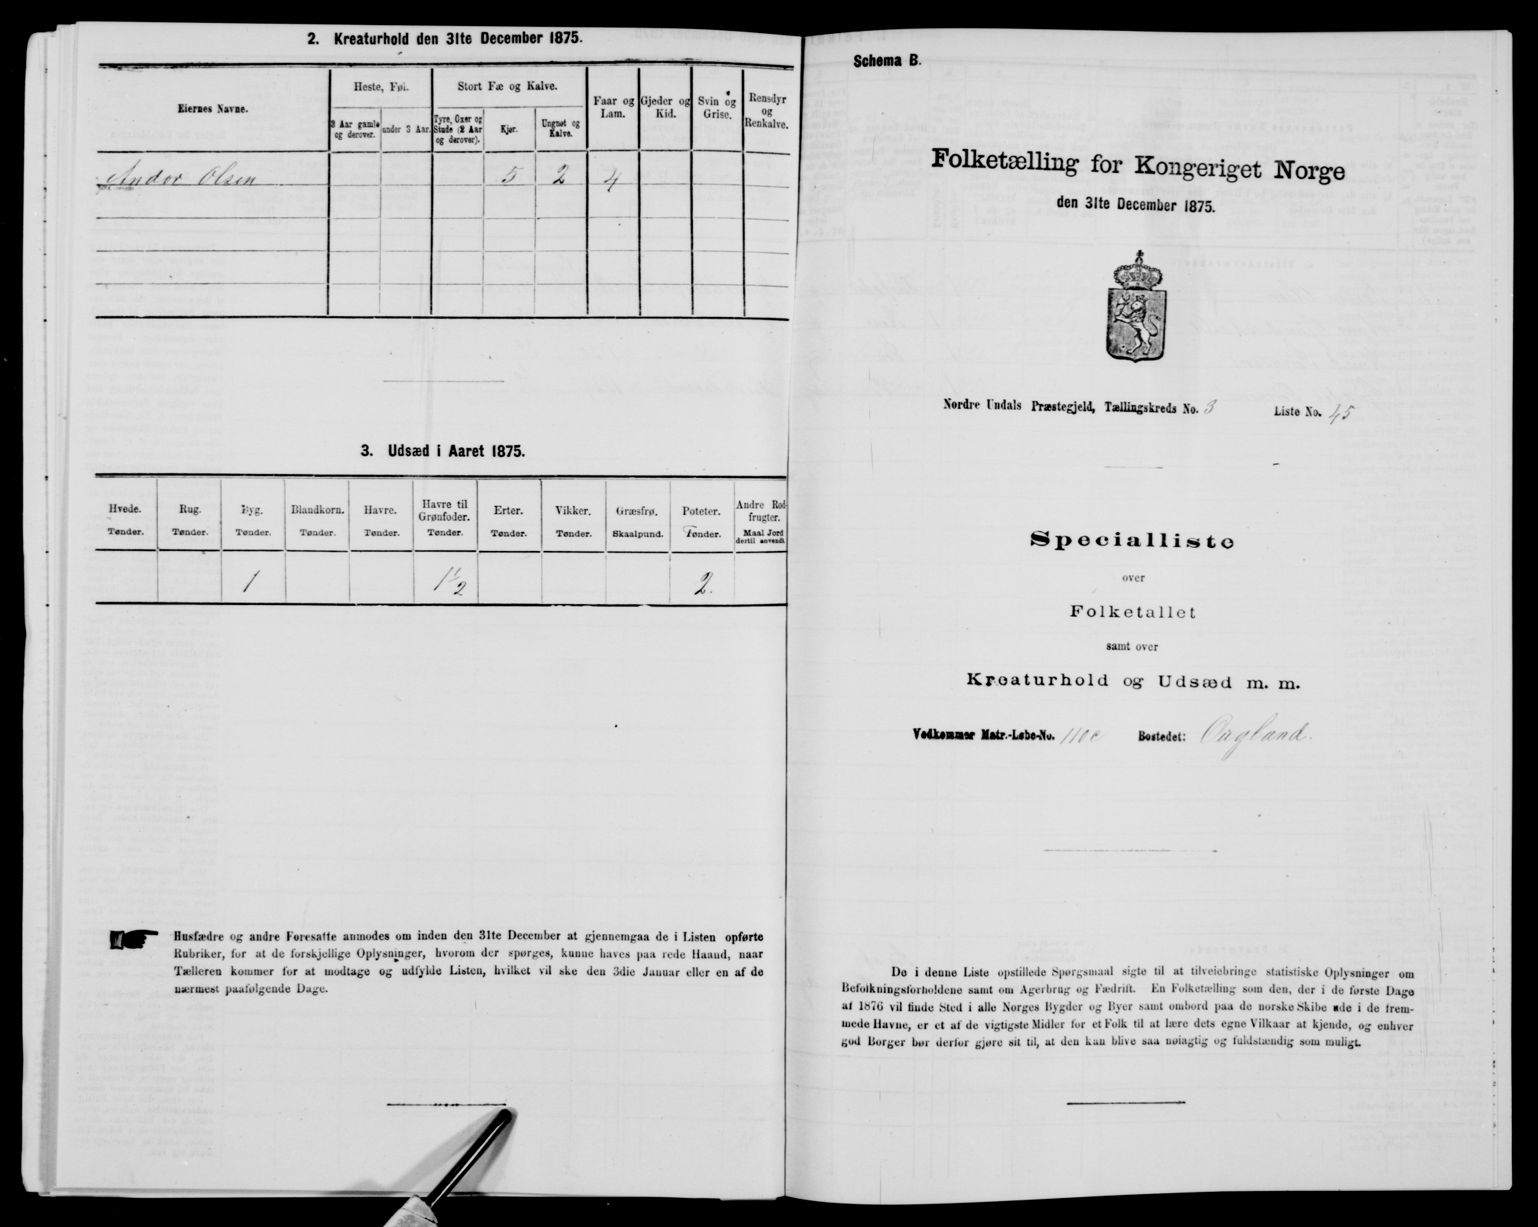 2. Kreaturhold den 31te December 1875.
Eiernes Navne.
Heste, Føl.
Stort Fæ og Kalve.
Faar og Lam.
Gjeder og Kid.
Svin og Grise.
Rensdyr og Renkalve.
3 Aar gamle og derover.
under 3 Aar.
Tyre, Oxer og Stude (2 Aar og derover).
Kjør.
Ungnøt og Kalve.
Andor Olsen 5 2 4
3. Udsæd i Aaret 1875.
Hvede. Rug. Byg. Blandkorn. Havre. Havre til Grønfoder. Erter. Vikker. Græsfrø. Poteter. Andre Rodfrugter.
Tønder. Tønder. Tønder. Tønder. Tønder. Tønder. Tønder. Tønder. Skaalpund. Tønder. Maal Jord dertil anvendt.
1 1½ 2.
Husfædre og andre Foresatte anmodes om inden den 31te December at gjennemgaa de i Listen opførte
Rubriker, for at de forskjellige Oplysninger, hvorom der spørges, kunne haves paa rede Haand, naar
Tælleren kommer for at modtage og udfylde Listen, hvilket vil ske den 3die Januar eller en af de
nærmest paafølgende Dage.
Schema B.
Folketælling for Kongeriget Norge
den 31te December 1875.
Nordre Undals Præstegjeld, Tællingskreds No. 3 Liste No. 45
Specialliste
over
Folketallet
samt over
Kreaturhold og Udsæd m. m.
Vedkommer Matr.-Løbe-No. 110c Bostedet:
De i denne Liste opstillede Spørgsmaal sigte til at tilveiebringe statistiske Oplysninger om
Befolkningsforholdene samt om Agerbrug og Fædrift. En Folketælling som den, der i de første Dage
af 1876 vil finde Sted i alle Norges Bygder og Byer samt ombord paa de norske Skibe ude i de frem-
mede Havne, er et af de vigtigste Midler for et Folk til at lære dets egne Vilkaar at kjende, og enhver
god Borger bør derfor gjøre sit til, at den kan blive saa nøiagtig og fuldstændig som muligt.